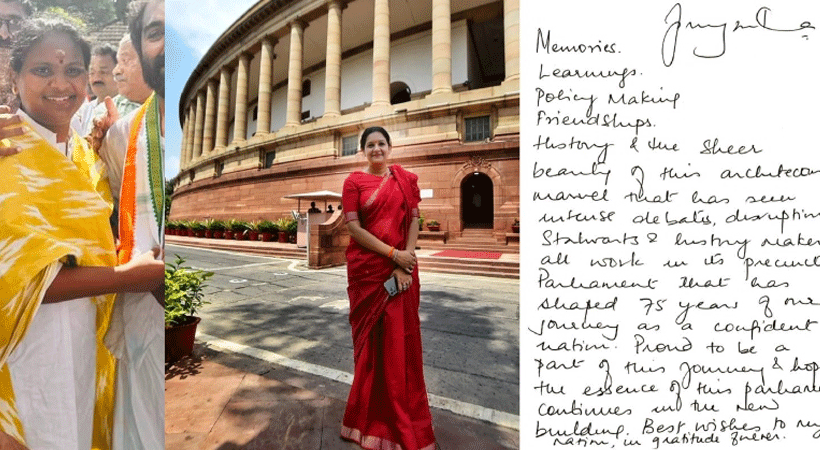 Memories.
Learnings.
Policy Making
Friendships.
History & the Sheer
beauty of this architectural
marvel that has seen
intense debates, disruption
Stalwarts & history maker
all work in its precinct
Parliament that has
shaped 75 years of our
journey as a confident
nation. Proud to be a
part of this journey & hop
the essence of this parliame
continues in the new
building. Best wishes to my
nation, in gratitude forever.